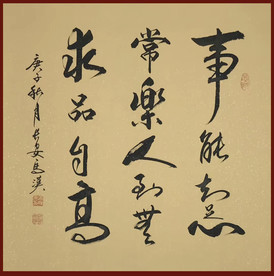 事能知足心
常樂人到無
求品自高
庚子秋月長安馬